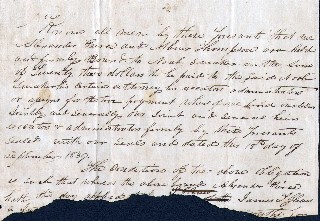 Know all men by these Presents that we
Alexander Pierce and Arthur Thompson are held
and firmly Bound to Noah in the Sum
of Seventy two dollars to be paid to the Said Noah
his certain attorney his executor administrators
or assigns for the true payment whereof we bind ourselves
Jointly and severally our and heirs
executors & administrators firmly by these presents
Sealed with our Seals and dated the 18th day of
September 1837.
The Condition of the above obligation
is such that whereas the above Alexander Pierce
hath the day